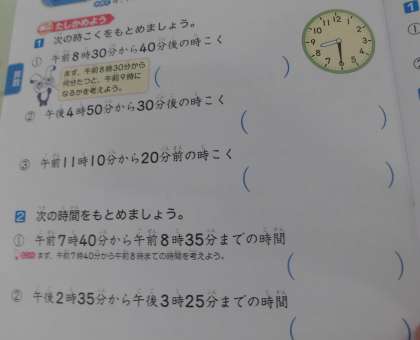 たしかめよう
1 次の時こくをもとめましょう。
① 午前8時30分から40分後の時こく
まず、午前8時30分から
何分たつと、午前9時に
なるかを考えよう。
( )
② 午後4時50分から30分後の時こく
( )
③ 午前11時10分から20分前の時こく
( )
2 次の時間をもとめましょう。
① 午前7時40分から午前8時35分までの時間
まず、午前7時40分から午前8時までの時間を考えよう。
( )
② 午後2時35分から午後3時25分までの時間
( )
算数
12 1 2 3 4 5 6 7 8 9 10 11
1
①